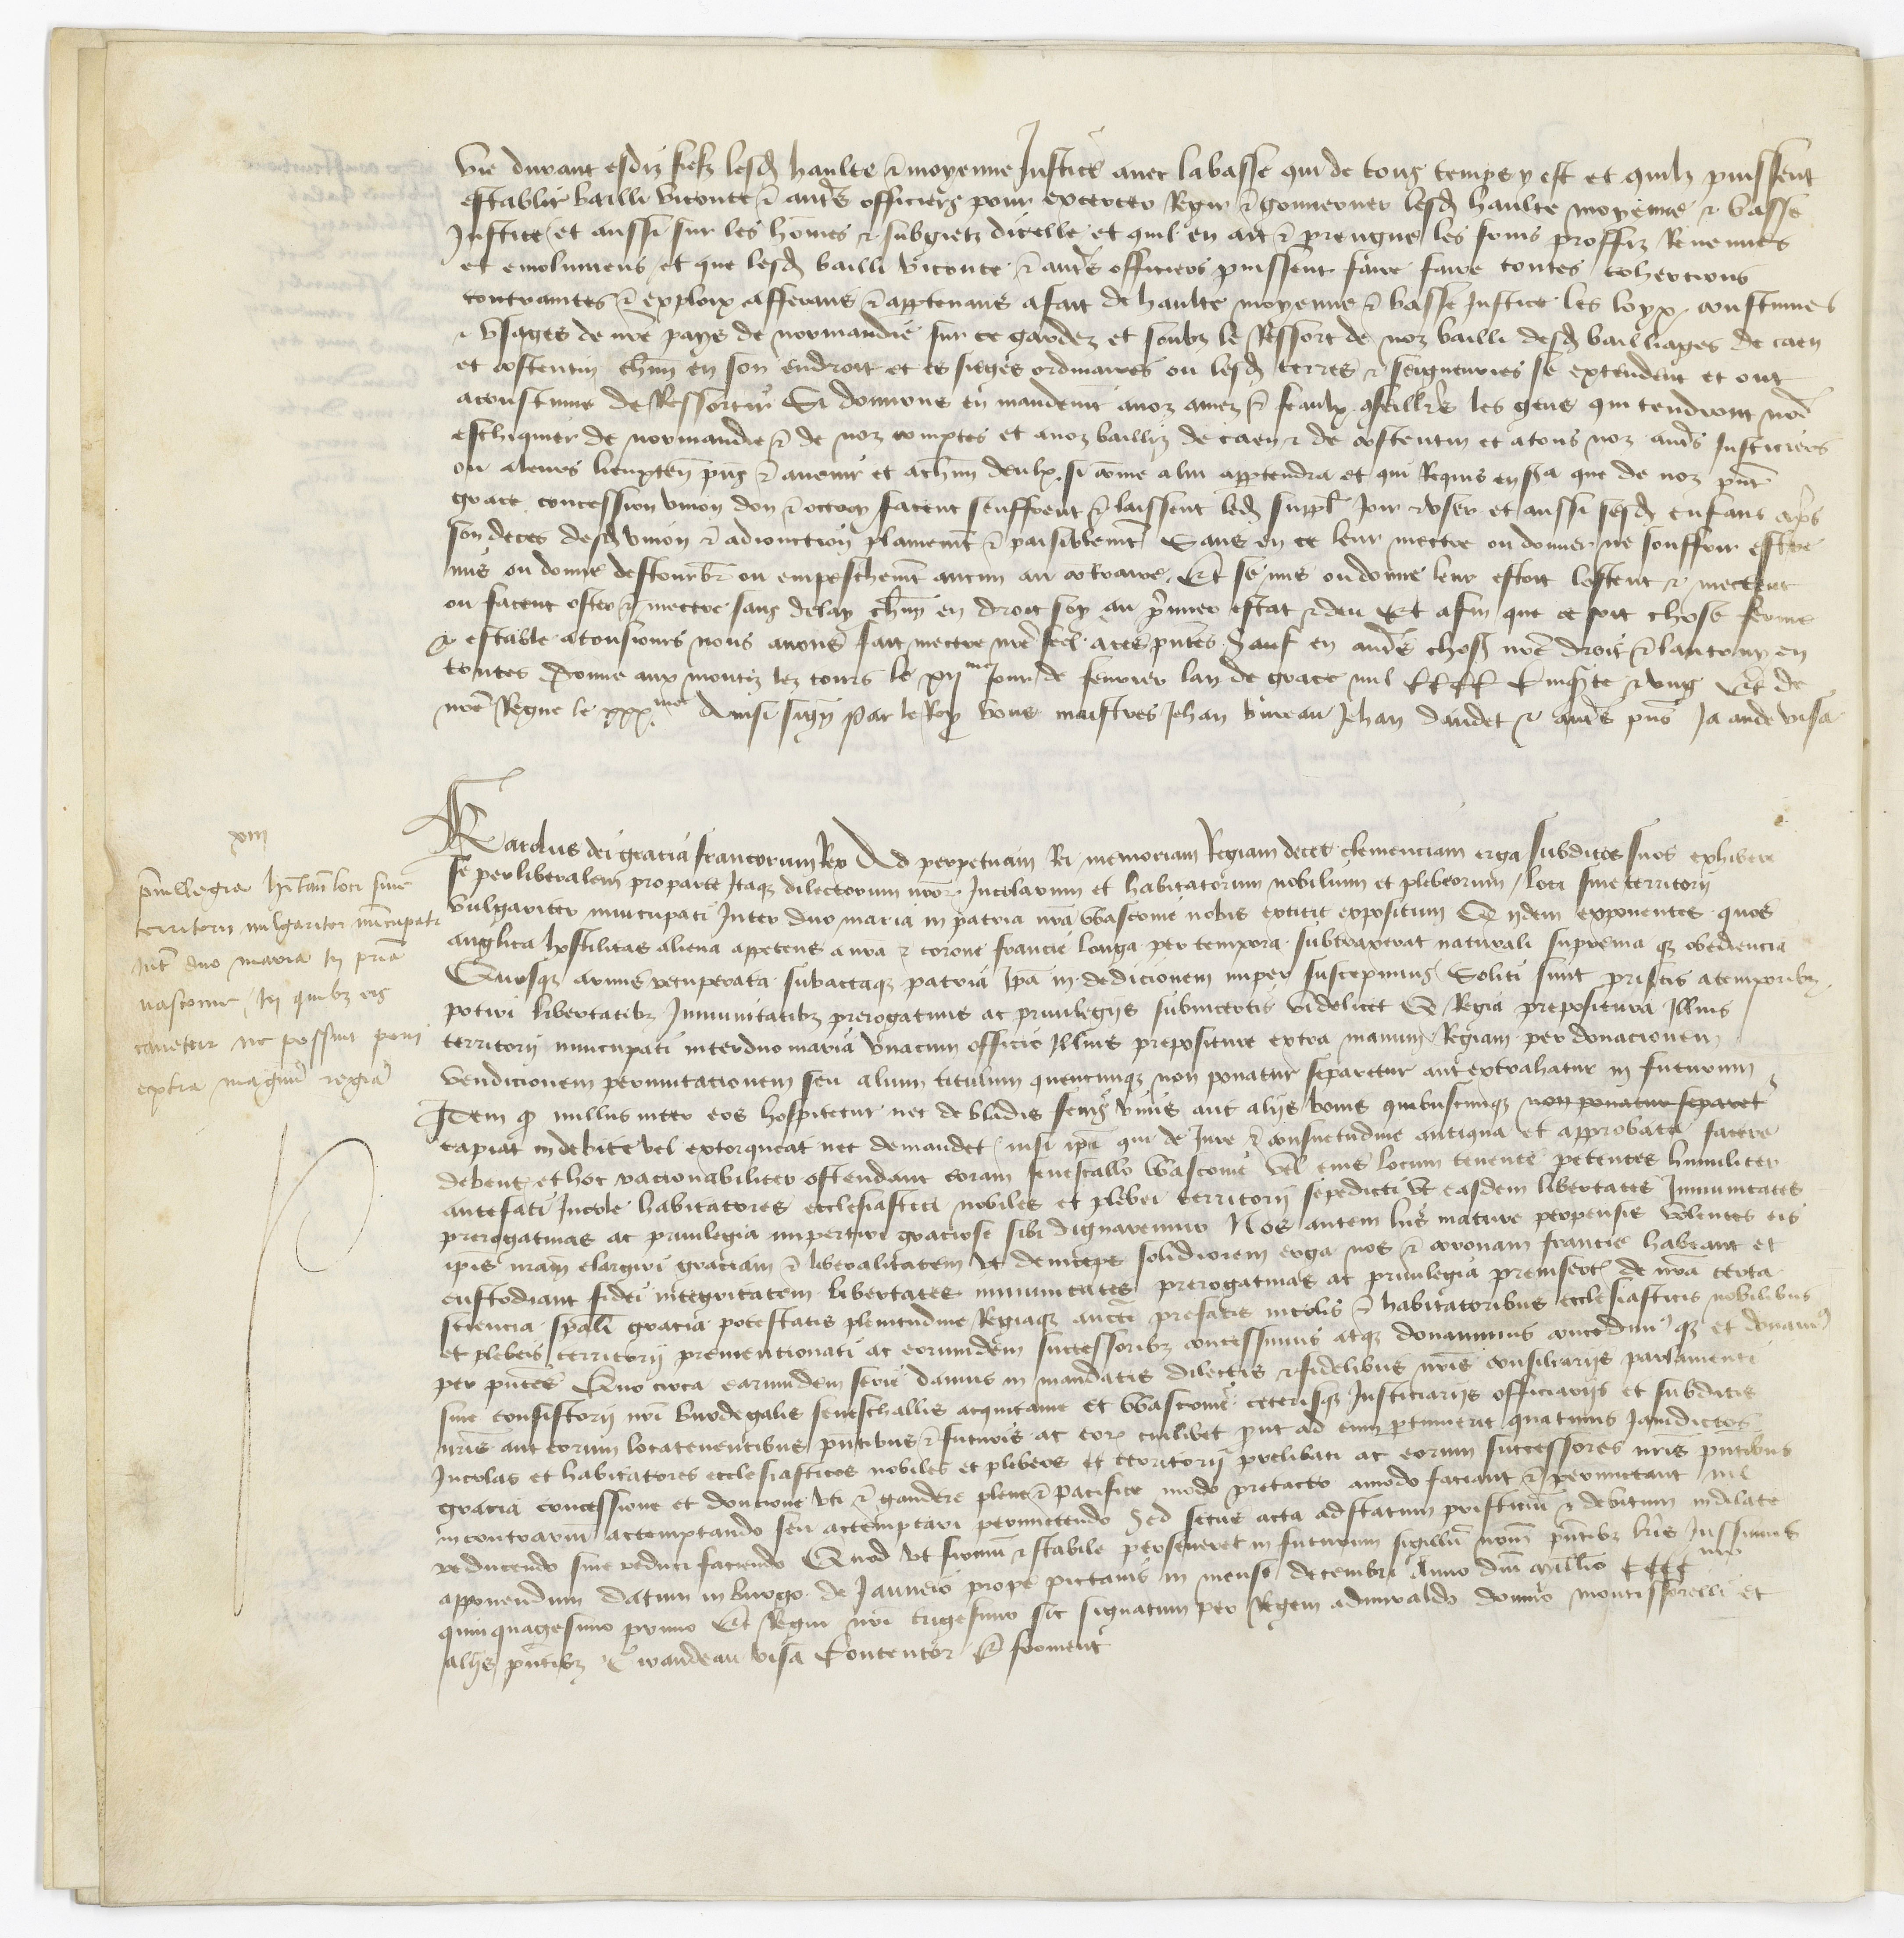 vie durant esdiz fiefz lesd haulte & moyenne Justice avec la basse qui de tous temps y est et quilz puissent
establir bailli viconte & autrs officiers pour excercer Regir & gouverner lesd haulte moyenne & basse
Justice et aussi sur les hommes & subgietz dicelle et quil en ait & prengne les fruis proffiz Revenues
et emolumens et que lesd bailli viconte & autrs officiers puissent faire faire toutes cohercions
contraintes & exploix afferans & apptenans a fait de haulte moyenne & basse Justice les loyx coustumes
& usages de nre pays de normandie sur ce gardez et soubz le Ressort de noz bailli desd bailliages de caen
et costentin chun en son endroit et es sieges ordinaires ou lesd terres & seigneuries se extendent et ont
acoustume de Ressortir Si donnons en mandemt a noz amez & feaulx conseillrs les gens qui tendront nred
eschiquier de normandie & de noz comptes et a noz bailliz de caen & de costentin et a tous noz autrs Justiciers
ou a leurs lieuxten pns & avenir et a chun deulx si comme a lui apptendra et qui Requis en sera que de noz pnt
grace concession union don & octroy facent seuffrent & laissent led suppl Joir & user et aussi sesd enfans aprs
son deces desd union & adionction plainemt & paisiblemt Sans en ce leur mectre ou donner ne souffrir estre
mis ou donne destourbr ou empeschemt aucun au contraire Et se mis ou donne leur estoit lostent & mectent
ou facent oster & mectre sans delay chun en droit soy au premier estat & deu Et afin que ce soit chose ferme
& estable a tousiours nous avons fait mectre nre seel a ces pntes Sauf en autrs choses nre droit & lautruy en
toutes Donne aux montiz lez tours le xii me Jour de fevrier lan de grace mil CCCC Cinqte & ung Et de
nre Regne le xxx me Ainsi signe Par le Roy vous maistres Jehan bureau Jehan daudet & autrs pns Ja aude visa
xiii
privilegia hitan loci sive
territorii vulgariter nuncupati
Int duo maria In pria
vasconie In quibz eis
cavetur ne possint poni
extra manu regia
Karolus dei gracia francorum Rex Ad perpetuam Rei memoriam Regiam decet clemenciam erga subditos suos exhibere
se perliberalem pro parte Itaque dilectorum nror Incolarum et habitatorum nobilium et plebeorum loci sive territorii
vulgariter nuncupati Inter duo maria in patria nra Wasconie nobis extitit expositum Q iidem exponentes quos
anglica hostilitas aliena appetens a nra & corone francie longa per tempora subtraxerat naturali suprema que obediencia
Quosque armis recuperata subactaque patria Ipa in dedicionem nuper suscepimus Soliti sunt priscis a temporibz
potiri libertatibz Immunitatibz prerogativis ac privilegiis subinsertis videlicet Q Regia prepositura Illius
territorii nuncupati inter duo maria unacum officio Illius prepositure extra manum Regiam per donacionem
vendicionem permutacionem seu alium titulum quencunque non ponatur separetur aut extrahatur in futurum
Idem q nullus inter eos hospitetur nec de bladis fenis vinis aut aliis bonis quibuscunque non ponatur separet
capiat indebite vel extorqueat nec demandet nisi ipi qui de Jure & consuetudine antiqua et approbata facere
debent et hoc racionabiliter ostendant coram senescallo Wasconie vel eius locum tenente petentes humiliter
antefati Incole habitatores ecclesiastici nobiles et plebei territorii sepedicti ut easdem libertates Immunitates
prerogativas ac privilegia impertiri graciose sibi dignaremur Nos autem his mature perpensis volentes eis
ipis nram elargiri graciam & liberalitatem ut deinceps solidiorem erga nos & coronam francie habeant et
custodiant fidei integritatem libertates immunitates prerogativas ac privilegia preinsert de nra certa
sciencia spali gracia potestatis plenitudine Regiaque aucte prefatis incolis & habitatoribus ecclesiasticis nobilibus
et plebeis territorii prementionati ac eorumdem successoribz concessimus atque donavimus concedimus que et donamus
per pntes Quo circa earumdem serie damus in mandatis dilectis & fidelibus nris consiliariis parlamenti
sive consistorii nri burdegalis seneschallis acquitanie et Wasconie ceterisque Justiciariis officiariis et subditis
nris aut eorum locatenentibus pntibus & futuris ac eor cuilibet prut ad eum ptinuerit quatinus Jamdictos
Incolas et habitatores ecclesiasticos nobiles et plebeos et territorii prelibati ac eorum successores nris pntibus
gracia concessione et donatione uti & gaudere plene & pacifice modo pretacto amodo faciant & permittant nil
incontrarium actemptando seu actemptari permittendo Sed secus acta ad statum pristinu & debitum indilate
reducendo sive reduci faciendo Quod ut firmu & stabile perseveret in futurum sigillu nrum pntibz lris Jussimus
apponendum Datum in burgo de Jauneio prope pictavis in mense decembri Anno dni millio CCCC mo
quinquagesimo primo Et Regni nri trigesimo sic signatum per Regem admiraldo domino montissorelli et
aliis pntibz Giraudeau visa Contentor E froment